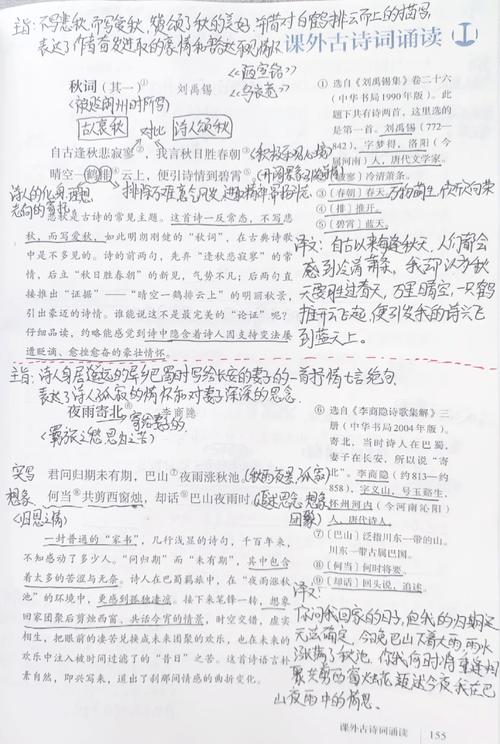 主旨:不写悲秋,而写爱秋,颂扬了秋的美好,并借对白鹤排云而上的描写,
表达了作者奋发进取的豪情和豁达乐观的情怀
课外古诗词诵读 I
秋词(其一)① 刘禹锡
《陋室铭》
《乌衣巷》
(被贬朗州时所写)
古人哀秋 对比 诗人颂秋
自古逢秋悲寂寥②,我言秋日胜春朝③
晴空一鹤排④云上,便引诗情到碧霄⑤
诗人的化身,理想
志向的寄托
悲秋是古诗的常见主题。这首诗一反常态,不写悲
秋,而写爱秋,如此明朗刚健的“秋词”,在古典诗歌
中是不多见的。诗的前两句,先弃“逢秋悲寂寥”的常
情,后立“秋日胜春朝”的新见,气势不凡;后两句直
接推出“证据”——“晴空一鹤排云上”的明丽秋景,
引出豪迈的诗情。谁能说这不是最完美的“论证”呢?
仔细品读,约略能感觉到诗中隐含着诗人因支持变法屡
遭贬谪、愈挫愈奋的豪壮情怀。
① 选自《刘禹锡集》卷二十六
(中华书局1990年版)。此
题下共有诗两首,这里选的
是第一首。刘禹锡(772—
842),字梦得,洛阳(今
属河南)人,唐代文学家。
② 〔寂寥〕冷清萧条。
③ 〔春朝〕春天。万物萌生,欣欣向荣
④ 〔排〕推开。
⑤ 〔碧霄〕蓝天。
译文:自古以来每逢秋天,人们都会
感到冷清萧条,我却认为秋
天要胜过春天,万里晴空,一只鹤
推开云飞起,便引发我的诗兴飞
到蓝天上。
主旨:诗人身居遥远的异乡巴蜀时写给长安的妻子的一首抒情七言绝句,
表达了诗人孤寂的情怀和对妻子深深的思念.
夜雨寄北⑥ 李商隐
寄给妻子的
(羁旅之愁,思归之苦)
实写 君问归期未有期,巴山⑦夜雨涨秋池。
想象 何当⑧共剪西窗烛,却话⑨巴山夜雨时。
一封普通的“家书”,几行浅显的诗句,千百年来,
不知感动了多少人。“问归期”而“未有期”,其中包含
着太多的苦涩与无奈。诗人在巴蜀羁旅中,在“夜雨涨秋
池”的环境中,更感到孤独凄凉。接下来笔锋一转,想象
回家团聚后剪烛西窗、共话今宵的情景,时空交错,虚实
相生,把眼前的凄苦兑换成未来团聚的欢乐,也在未来的
欢乐中注入被时间过滤了的“昔日”之苦。这首诗语言朴
素自然,即兴写来,道出了刹那间情感的曲折变化。
⑥ 选自《李商隐诗歌集解》三
册(中华书局2004年版)。
寄北,当时诗人在巴蜀,
妻子在长安,所以说“寄
北”。李商隐(约813—约
858),字义山,号玉谿生,
怀州河内(今河南沁阳)
人,唐代诗人。
⑦ 〔巴山〕泛指川东一带的山。
川东一带古属巴国。
⑧ 〔何当〕何时将要。
⑨ 〔却话〕回头说,追述。
译文:
你问我回家的日子,但我的归期
无法确定,今晚巴山下着大雨,雨水
涨满了秋池,你我何时
课外古诗词诵读 155